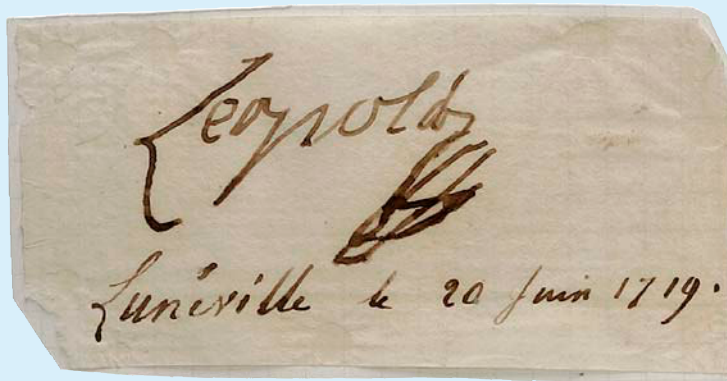 Leopold
Lunéville le 20 Juin 1719.